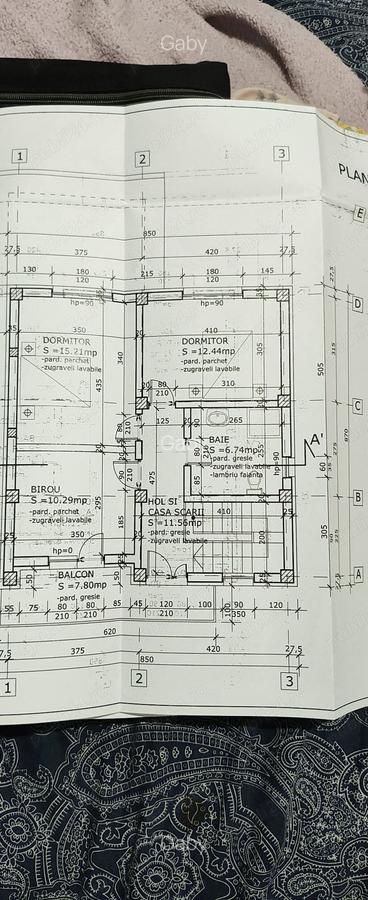 Gaby
1
2
3
PLAN
E
850
27,5
375
420
27,5
130
180
215
180
145
120
120
D
hp=90
hp=90
350
410
DORMITOR
S =15.21mp
-pard. parchet
-zugraveli lavabile
DORMITOR
S =12.44mp
-pard. parchet
-zugraveli lavabile
340
305
435
505
315
20
80
310
210
C
125
265
Gaby
BAIE
S =6.74mp
-pard. gresie
-zugraveli lavabile
-lambriu faianta
A'
hp=90
255
475
85
60
BIROU
S =10.29mp
-pard. parchet
-zugraveli lavabile
295
185
B
HOL SI
CASA SCARII
S =11.56mp
-pard. gresie
-zugraveli lavabile
410
25
200
350
hp=0
BALCON
S =7.80mp
-pard. gresie
A
55
75
80
80
85
45
120
100
90
120
210
210
210
350
620
420
375
27,5
850
1
2
3
Gaby